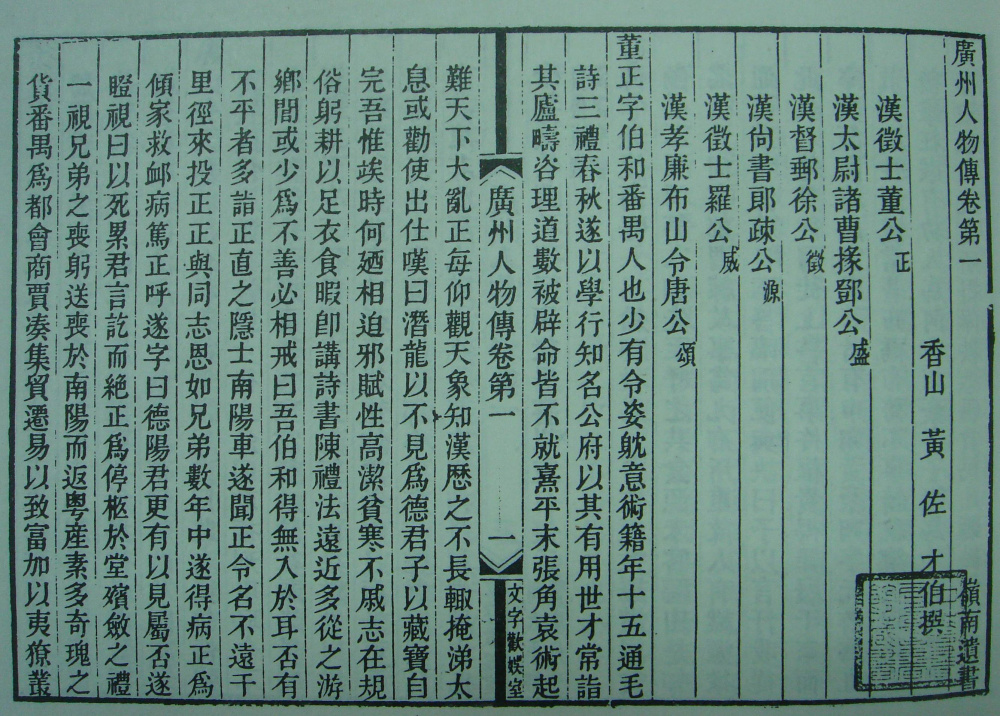 廣州人物傳卷第一
嶺南遺書
香山 黃 佐 才伯撰
漢徵士董公正
漢太尉諸曹掾鄧公盛
漢督郵徐公徵
漢尙書郞疎公源
漢徵士羅公威
漢孝廉布山令唐公頌
董正字伯和番禺人也少有令姿躭意術籍年十五通毛
詩三禮春秋遂以學行知名公府以其有用世才常詣
其廬疇咨理道數被辟命皆不就熹平末張角袁術起
廣州人物傳卷第一
一
文字歡娛室
難天下大亂正每仰觀天象知漢歴之不長輙掩涕太
息或勸使出仕嘆曰潛龍以不見爲德君子以藏寶自
完吾惟竢時何廼相迫邪賦性高潔貧寒不戚志在規
俗躬耕以足衣食暇卽講詩書陳禮法遠近多從之游
鄕閭或少爲不善必相戒曰吾伯和得無入於耳否有
不平者多詣正直之隱士南陽車遂聞正令名不遠千
里徑來投正正與同志恩如兄弟數年中遂得病正爲
傾家救邺病篤正呼遂字曰德陽君更有以見屬否遂
瞪視曰以死累君言訖而絕正爲停柩於堂殯斂之禮
一視兄弟之喪躬送喪於南陽而返粵産素多奇瑰之
貨番禺爲都會商賈凑集貿遷易以致富加以夷獠叢